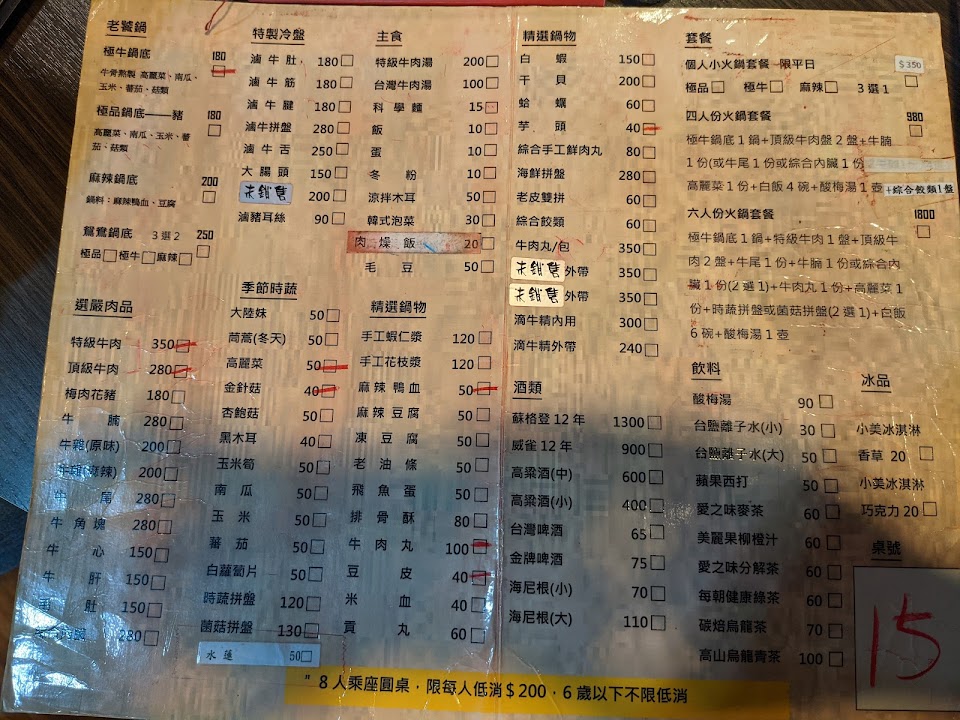 老饕鍋
極牛鍋底 180
牛骨熬製 高麗菜、南瓜、
玉米、蕃茄、菇類
極品鍋底——豬 180
高麗菜、南瓜、玉米、蕃
茄、菇類
麻辣鍋底 200
鍋料:麻辣鴨血、豆腐
鴛鴦鍋底 3選2 250
極品 極牛 麻辣
選嚴肉品
特級牛肉 350
頂級牛肉 280
梅肉花豬 180
牛腩 280
牛雜(原味) 200
牛雜(麻辣) 200
牛尾 280
牛角塊 280
牛心 150
牛肝 150
牛肚 150
280
特製冷盤
滷牛肚 180
滷牛筋 180
滷牛腱 180
滷牛拼盤 280
滷牛舌 250
大腸頭 150
未銷售 200
滷豬耳絲 90
季節時蔬
大陸妹 50
茼蒿(冬天) 50
高麗菜 50
金針菇 40
杏鮑菇 50
黑木耳 40
玉米筍 50
南瓜 50
玉米 50
蕃茄 50
白蘿蔔片 50
時蔬拼盤 120
菌菇拼盤 130
水蓮 50
主食
特級牛肉湯 200
台灣牛肉湯 100
科學麵 15
飯 10
蛋 10
冬粉 10
涼拌木耳 50
韓式泡菜 30
肉燥飯 20
毛豆 50
精選鍋物
手工蝦仁漿 120
手工花枝漿 120
麻辣鴨血 50
麻辣豆腐 50
凍豆腐 50
老油條 50
飛魚蛋 50
排骨酥 80
牛肉丸 100
豆皮 40
米血 40
貢丸 60
精選鍋物
白蝦 150
干貝 200
蛤蠣 60
芋頭 40
綜合手工鮮肉丸 80
海鮮拼盤 280
老皮雙拼 60
綜合餃類 60
牛肉丸/包 350
未銷售 外帶 350
未銷售 外帶 350
滴牛精內用 300
滴牛精外帶 240
酒類
蘇格登12年 1300
威雀12年 900
高粱酒(中) 600
高粱酒(小) 400
台灣啤酒 65
金牌啤酒 75
海尼根(小) 70
海尼根(大) 110
套餐
個人小火鍋套餐 限平日 $350
極品 極牛 麻辣 3選1
四人份火鍋套餐 980
極牛鍋底1鍋+頂級牛肉盤2盤+牛腩
1份(或牛尾1份或綜合內臟1份
高麗菜1份+白飯4碗+酸梅湯1壺+綜合餃類1盤
六人份火鍋套餐 1800
極牛鍋底1鍋+特級牛肉1盤+頂級牛
肉2盤+牛尾1份+牛腩1份或綜合內
臟1份(2選1)+牛肉丸1份+高麗菜1
份+時蔬拼盤或菌菇拼盤(2選1)+白飯
6碗+酸梅湯1壺
飲料
酸梅湯 90
台鹽離子水(小) 30
台鹽離子水(大) 50
蘋果西打 50
愛之味麥茶 60
美麗果柳橙汁 60
愛之味分解茶 60
每朝健康綠茶 60
碳焙烏龍茶 70
高山烏龍青茶 100
冰品
小美冰淇淋
香草 20
小美冰淇淋
巧克力 20
桌號
15
" 8人乘座圓桌,限每人低消$200,6歲以下不限低消